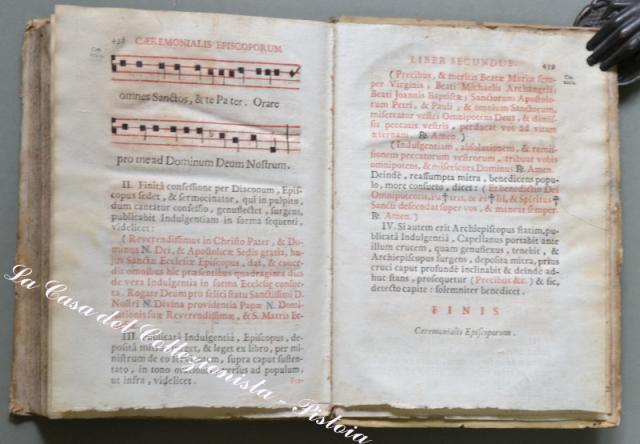 438 CÆREMONIALIS EPISCOPORUM
omnes Sanctos, & te Pater. Orare
pro me ad Dominum Deum Nostrum.
II. Finita confessione per Diaconum, Epis-
copus sedet, & sermocinator, qui in pulpito,
dum cantatur confessio, genuflectit, surgens,
publicabit Indulgentiam in forma sequenti,
videlicet:
(Reverendissimus in Christo Pater, & Do-
minus N. Dei, & Apostolicæ Sedis gratia, hu-
jus Sanctæ Ecclesiæ Episcopus, dat, & conce-
dit omnibus hic præsentibus quadraginta dies
de vera Indulgentia in forma Ecclesiæ consue-
ta. Rogate Deum pro felici statu Sanctissimi D.
Nostri N. Divina providentia Papæ N. Domi-
nationis suæ Reverendissimæ, & S. Matris Ec-
III. Publicata Indulgentia, Episcopus, de-
posita mitra, surget, & leget ex libro, per mi-
nistrum de
tato, in tono versus ad populum,
ut infra, videlicet.
LIBER SECUNDUS. 439
(Precibus, & meritis Beatæ Mariæ sem-
per Virginis, Beati Michaelis Archangeli,
Beati Joannis Baptistæ, Sanctorum Apostolo-
rum Petri, & Pauli, & omnium Sanctorum
misereatur vestri Omnipotens Deus, & dimis-
sis peccatis vestris, perducat vos ad vitam
æternam. ℟. Amen.)
(Indulgentiam, absolutionem, & remis-
sionem peccatorum vestrorum, tribuat vobis
omnipotens, & misericors Dominus ℟. Amen.
Deindè, reassumpta mitra, benedicens popu-
lo, more consueto, dicet: (Et benedictio Dei
Omnipotentis, Pa✝tris, & Fi✝lii, & Spiritus✝
Sancti descendat super vos, & maneat semper.
℟. Amen.)
IV. Si autem erit Archiepiscopus statim,
publicata Indulgentia, Capellanus portabit ante
illum crucem, quam genuflexus, tenebit, &
Archiepiscopus surgens, deposita mitra, prius
cruci caput profundè inclinabit & deinde ad-
huc stans, prosequetur (Precibus &c.) & sic,
detecto capite: solemniter benedicet.
FINIS
Ceremonialis Episcoporum.
La Casa del Collezionista - Pistoia